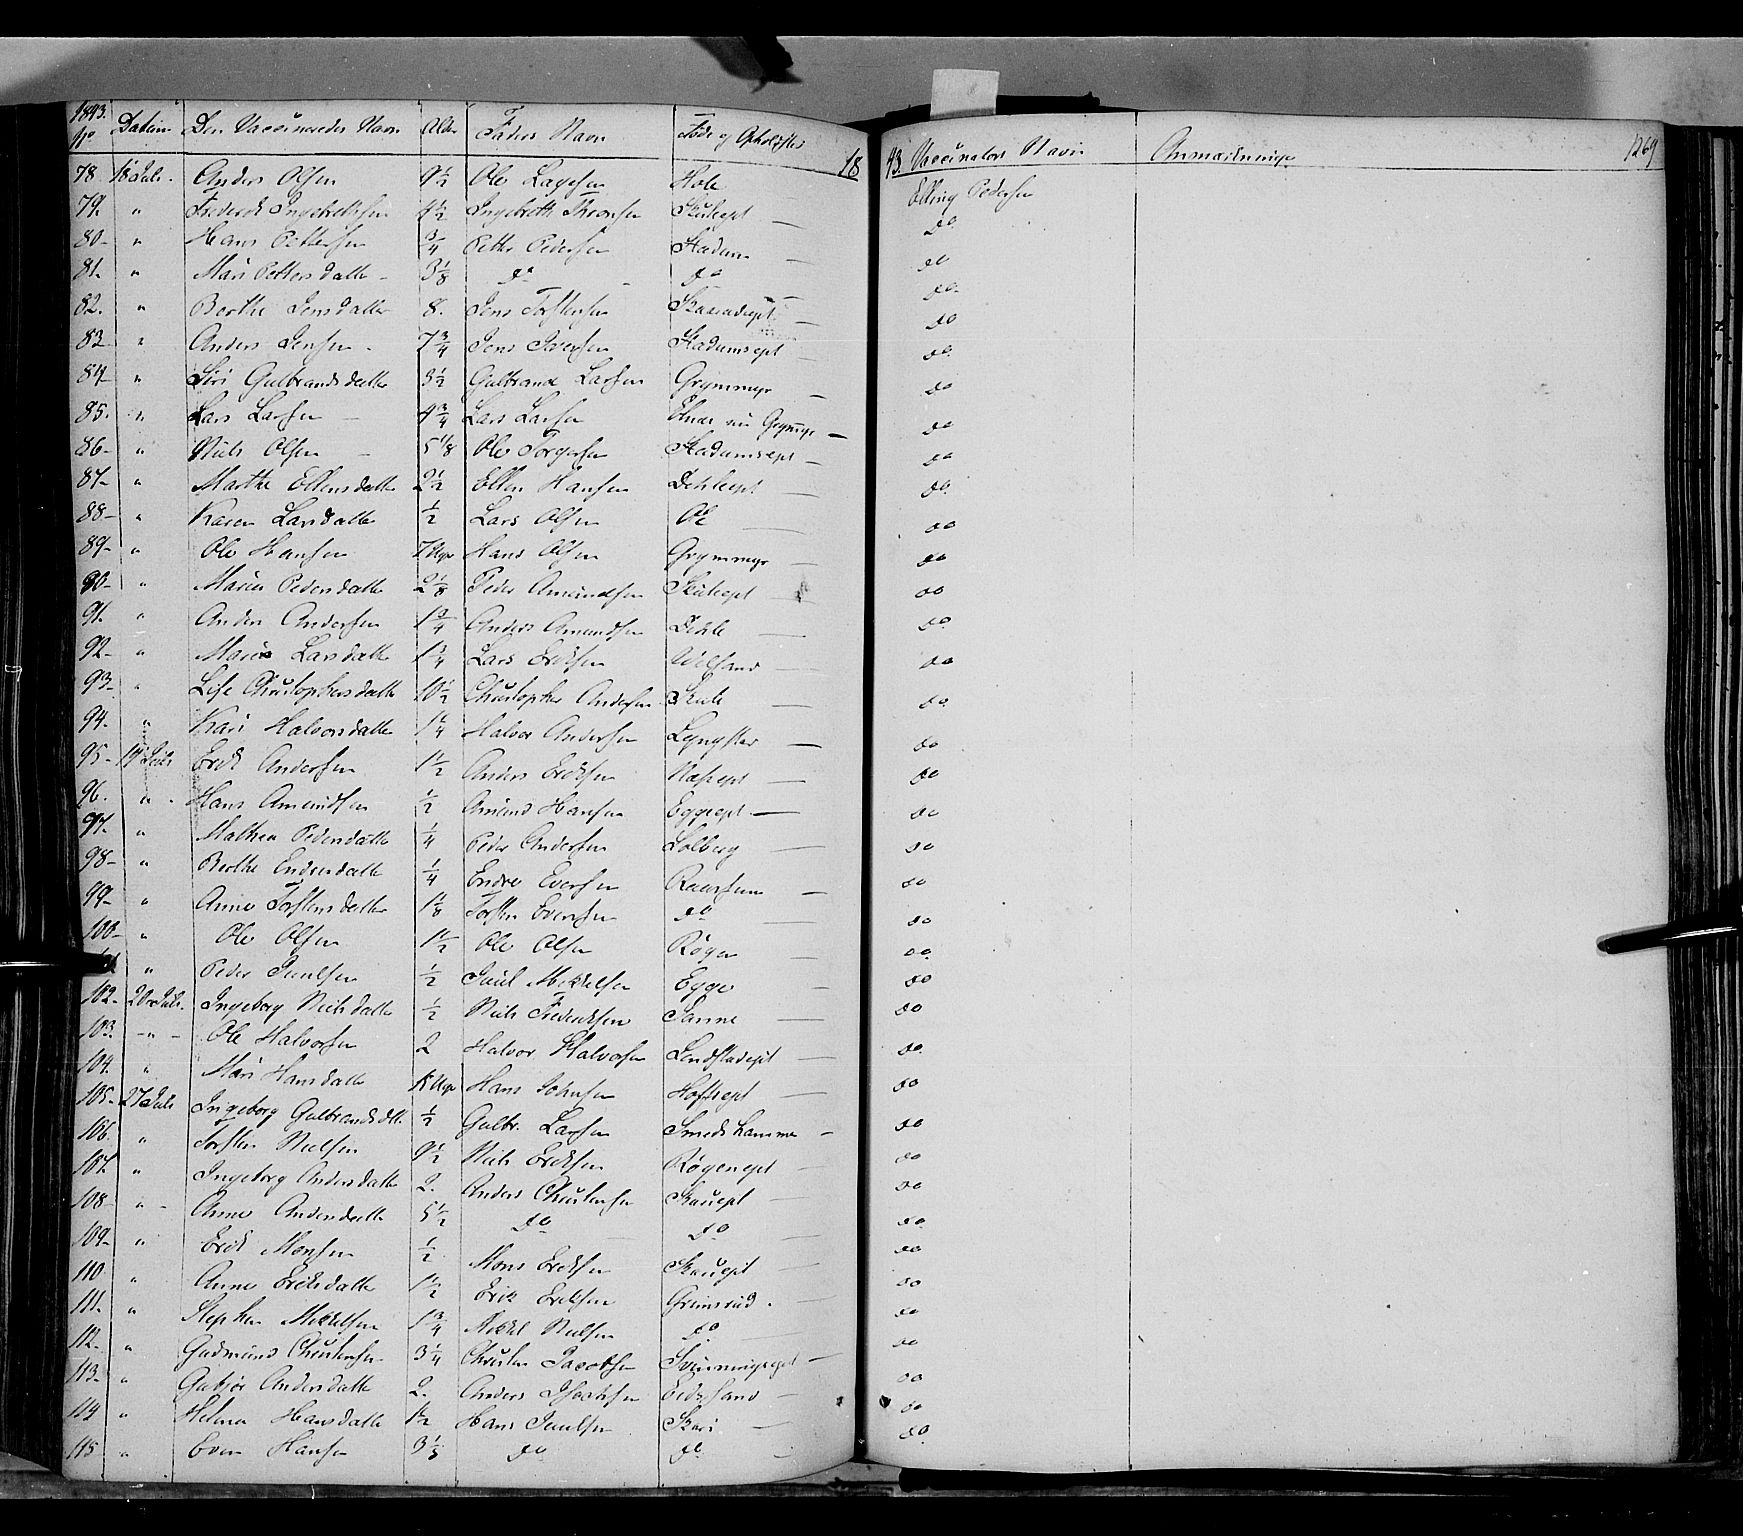 1843. No Datum Den Vaccineredes Navn Alder Faders Navn Føde og Opholdsted 18 43. Vaccinators Navn Anmærkninger 1269
78 18 Juli. Anders Olsen 9 1/2 Ole Lagesen Hole Elling Pedersen
79. " Frederik Ingebrethsen 4 1/2 Ingebreth Thronsen — do
80- " Hans Pettersen 3/4 Petter Pedersen Stadum — do
81. " Mari Pettersdatter 3 1/8 do do — do
82. " Berthe Jensdatter 8. Jens Torstensen — do
83 " Anders Jensen 7 3/4 Jens Iversen Stadumseyet — do
84- " Siri Gulbrandsdatter 3 1/2 Gulbrand Larsen Grymmyr — do
85. " Lars Larsen 4 3/4 Lars Larsen Grymyr — do
86- " Niels Olsen 5 1/8 Ole Torgersen Stadumseyet — do
87- " Marthe Ellensdatter 2 1/2 Ellen Hansen — do
88- " Karen Larsdatter 1/2 Lars Olsen do — do
89- " Ole Hansen 7 Uger Hans Olsen Grymmyr — do
90- " Marie Pedersdatter 2 1/8 Peder Amundsen — do
91. " Anders Andersen 1 3/4 Anders Amundsen — do
92- " Marie Larsdatter 1 3/4 Lars Eriksen — do
93- " Lise Christophersdatter 10 1/2 Christopher Andersen — do
94. " Kari Halvorsdatter 1 1/4 Halvor Andersen — do
95- 19 Juli Erik Andersen 1 1/2 Anders Eriksen Næseyet — do
96. " Hans Amundsen 1/2 Amund Hansen Eggeeyet — do
97. " Mathea Pedersdatter 1/4 Peder Andersen Solberg — do
98- " Berthe Endresdatter 1/4 Endre Eversen — do
99- " Anne Torstensdatter 1 1/8 Torsten Evensen do — do
100- " Ole Olsen 1 1/2 Ole Olsen Røgen — do
" Peder Paulsen 1/2 Paul Mikkelsen Egge — do
102- 20 Juli. Ingeborg Nielsdatter 1/2 Niels Frederiksen Sanne — do
103. -"- Ole Halvorsen 2 Halvor Halvorsen — do
104. " Mari Hansdatter Uger Hans Johnsen Hofseyet — do
105- 27 Juli Ingeborg Gulbrandsdtt. 1/2 Gulbr. Larsen Smedshammer — do
106. " Torsten Nielsen 9 1/2 Niels Eriksen Røgeneyet — do
107. " Ingeborg Andersdatter 2. Anders Christensen — do
108- " Anne Andersdatter 5 1/2 do do do
109- " Erik Monsen 1/2 Mons Eriksen — do
110. " Anne Eriksdatter 1 1/2 Erik Eriksen Grimsrud. do
111. " Stephen Mikkelsen 1 3/4 Mikkel Nielsen do do
112. " Gudmund Christensen 3 1/4 Christen Jacobsen — do
113. " Gubjør Andersdatter 2. Anders — do
114 " Helene Hansdatter 1 1/2 Hans Paulsen — do
115 " Even Hansen 3 1/8 do do — do